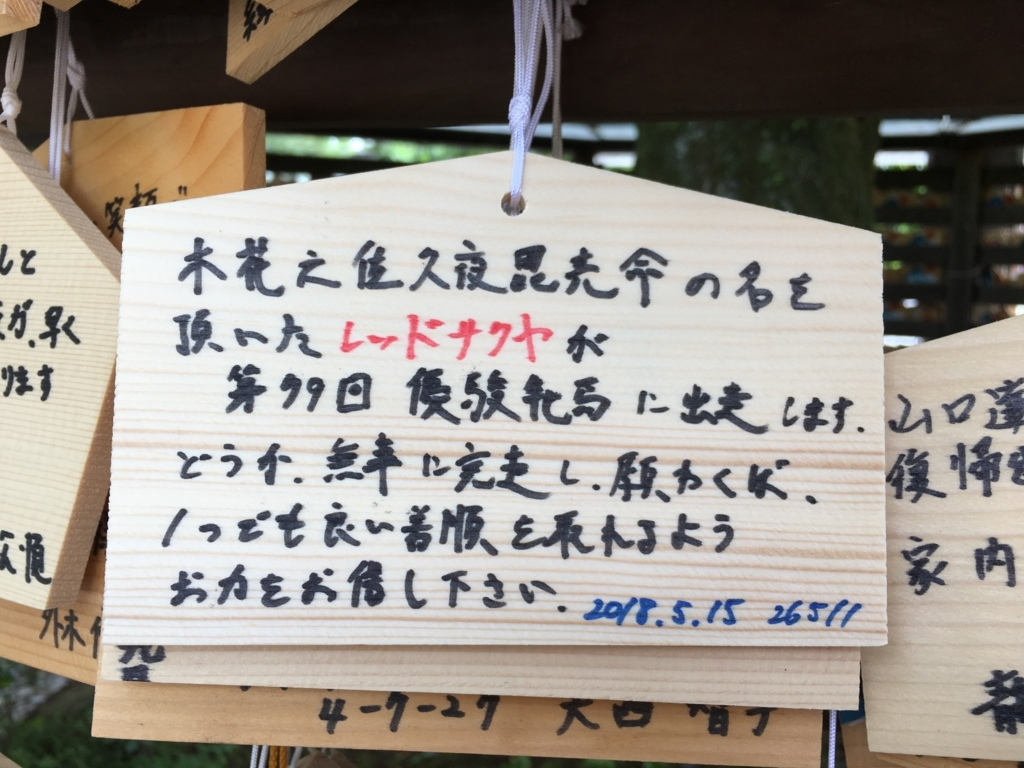 木花之佐久夜昆売命の名を
頂いたレッドサクヤが
第79回 優駿牝馬に出走します.
どうか、無事に完走し、願わくば、
1つでも良い着順を取れるよう
お力をお借し下さい.
2018.5.15 26511
笑顔
しと
が、早く
ります
外木
4-7-27 大西
山口
復帰
家内